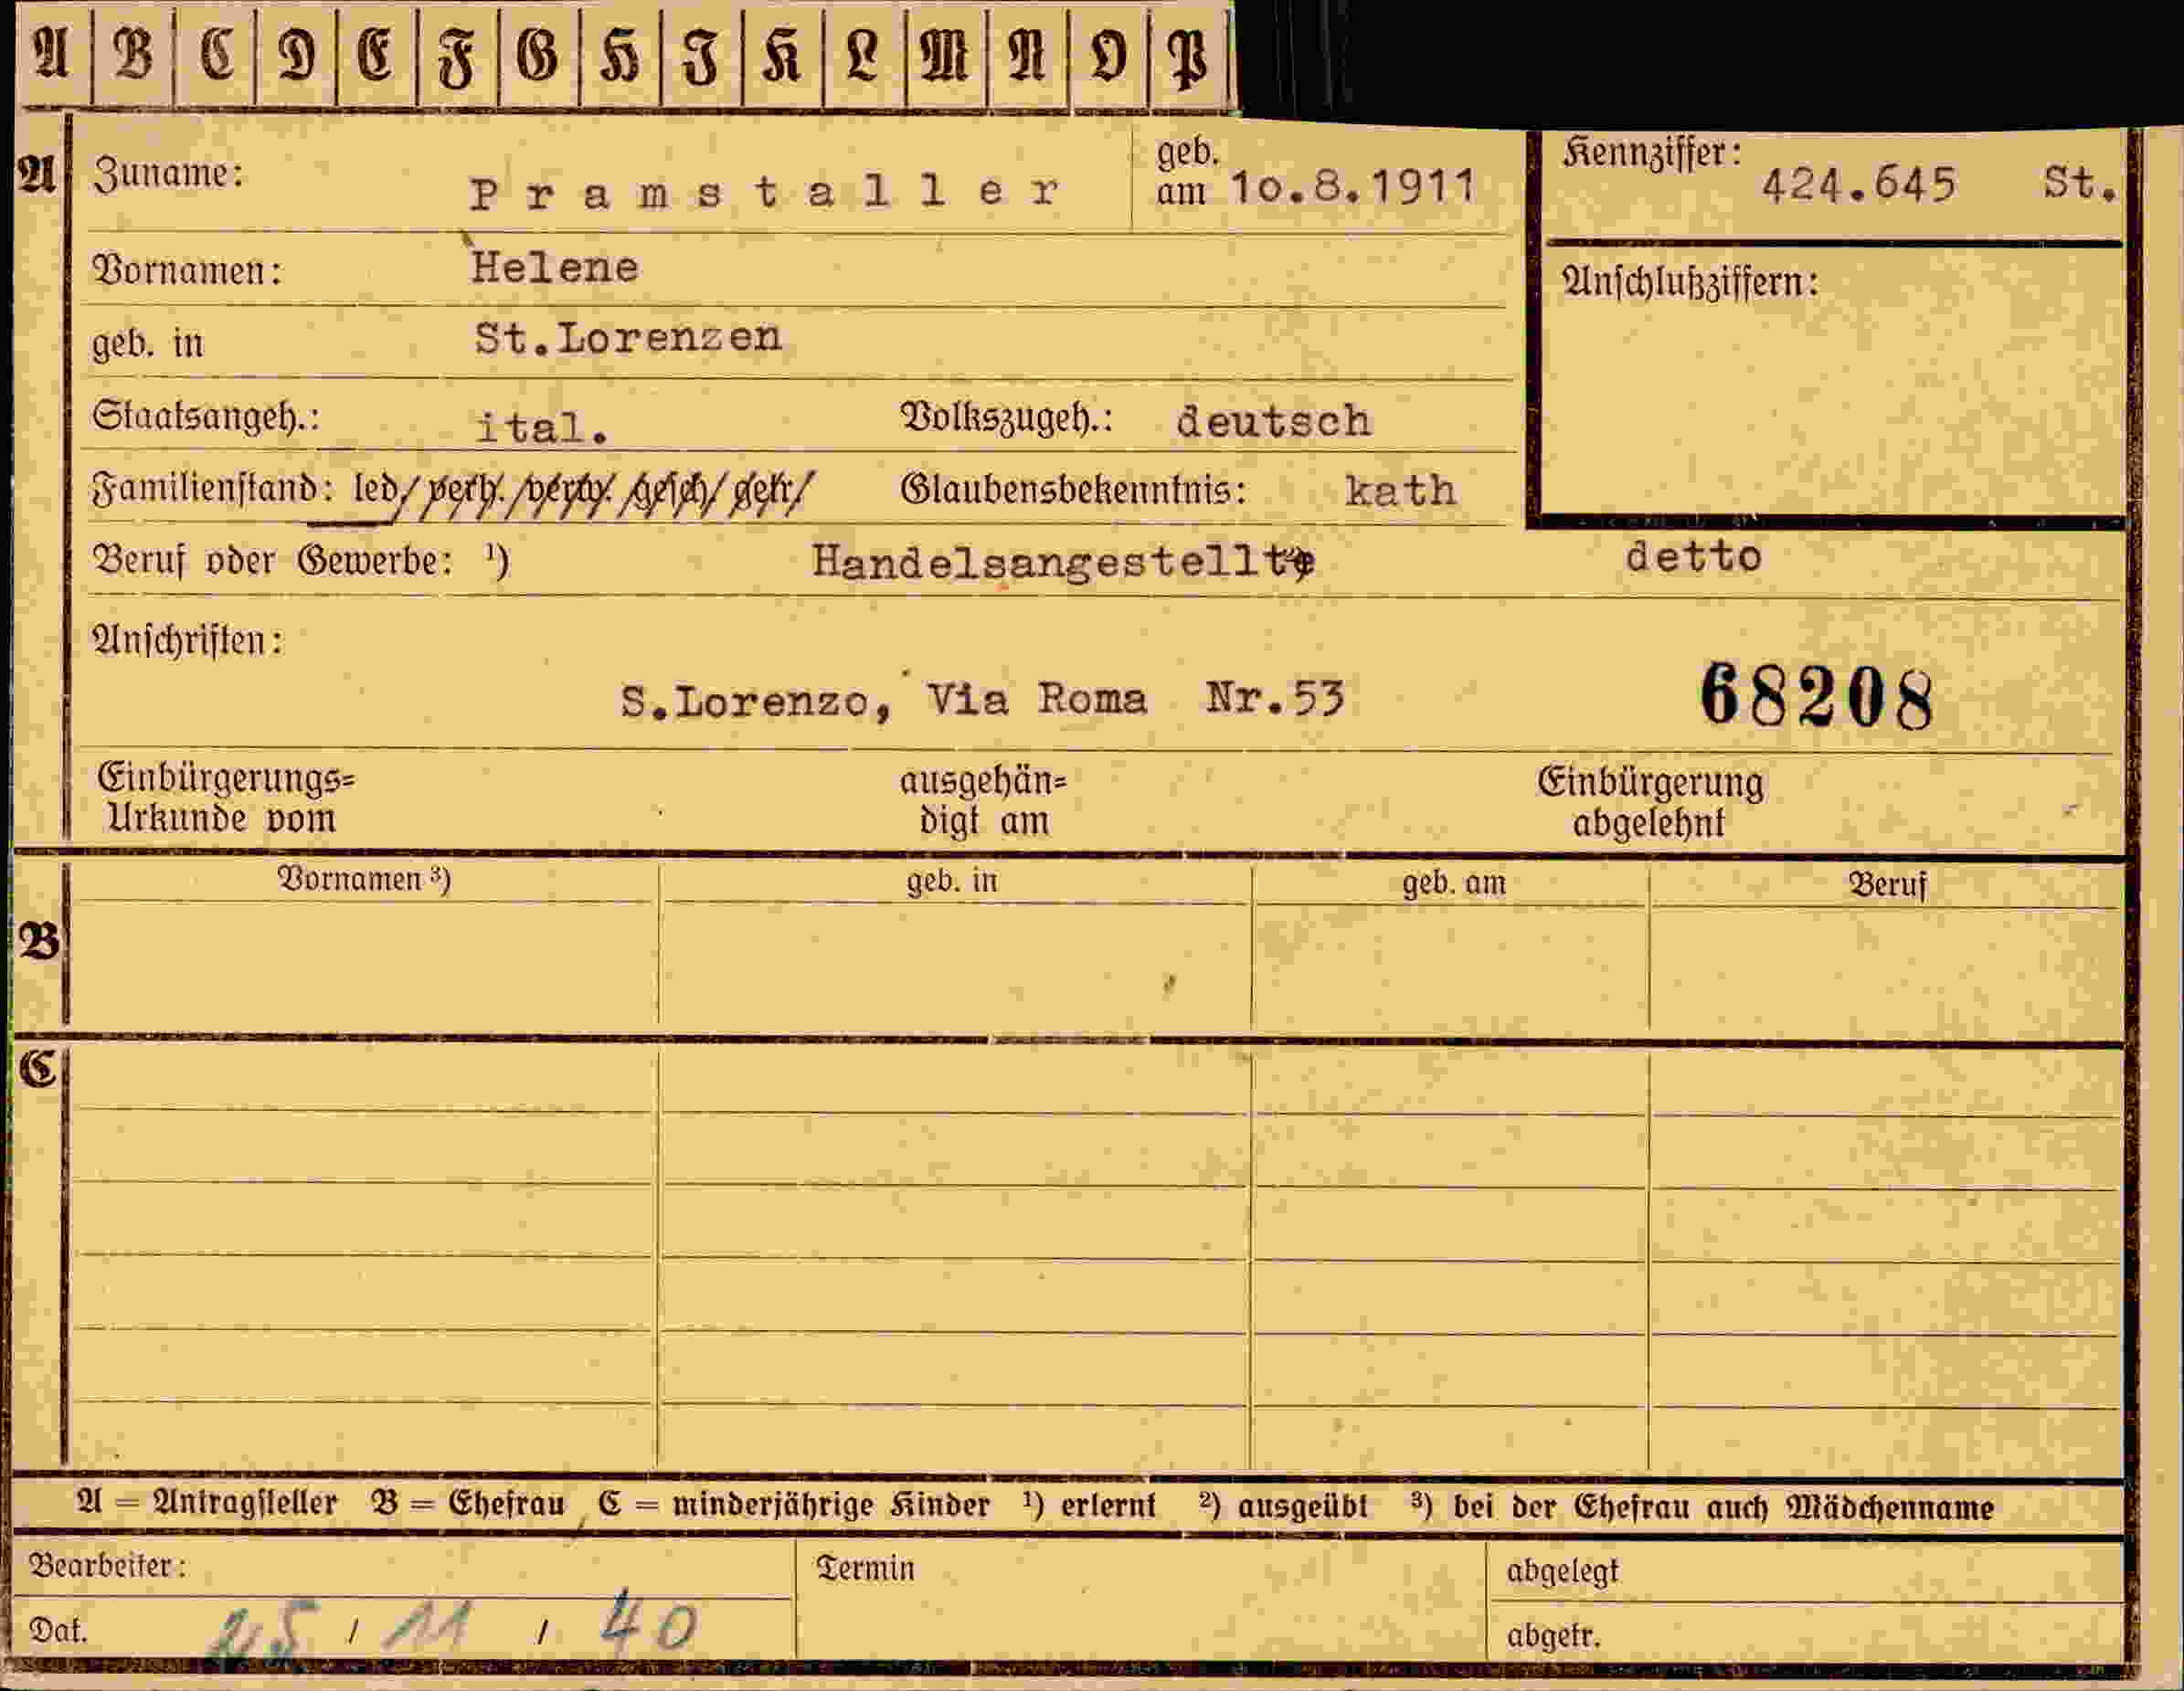 A B C D E F G H I K L M N O P
A Zuname: Pramstaller geb. am 10.8.1911 Kennziffer: 424.645 St.
Vornamen: Helene Anschlußziffern:
geb. in St.Lorenzen
Staatsangeh.: ital. Volkszugeh.: deutsch
Familienstand: led/ verh. /verw. /gesch/ getr/ Glaubensbekenntnis: kath
Beruf oder Gewerbe: ¹) Handelsangestellte detto
Anschriften:
S.Lorenzo, Via Roma Nr.53 68208
Einbürgerungs= ausgehän= Einbürgerung
Urkunde vom digt am abgelehnt
Vornamen ³) geb. in geb. am Beruf
B
C
A = Antragsteller B = Ehefrau C = minderjährige Kinder ¹) erlernt ²) ausgeübt ³) bei der Ehefrau auch Mädchenname
Bearbeiter: Termin abgelegt
Dat. 25 / 11 / 40 abgetr.